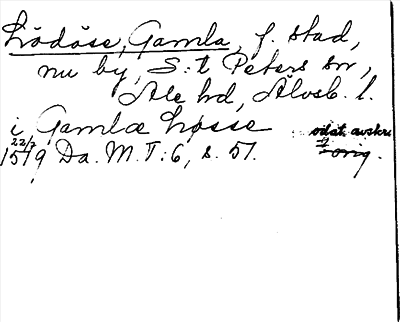 Lödöse, Gamla, f. stad,
nu by, S:t Peters sn,
Ale hd, Älvsb. l.
i Gamlæ Løsse odat. avskr.
22/7 orig.
1519 Da. M. T:6, s. 51.